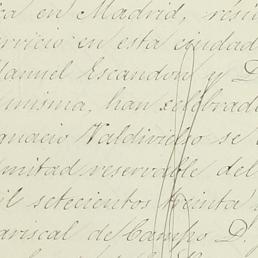 ca en Madrid, resi
ervicio en esta ciudad
Manuel Escandon y D
misma, han celebrado
gnacio Valdivielso se
mitad reservable del
il setecientos treinta
ariscal de Campo D.